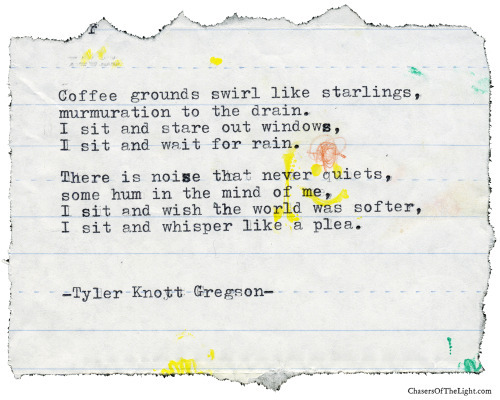 Coffee grounds swirl like starlings,
murmuration to the drain.
I sit and stare out windows,
I sit and wait for rain.
There is noise that never quiets,
some hum in the mind of me,
I sit and wish the world was softer,
I sit and whisper like a plea.
-Tyler Knott Gregson-
ChasersOfTheLight.com